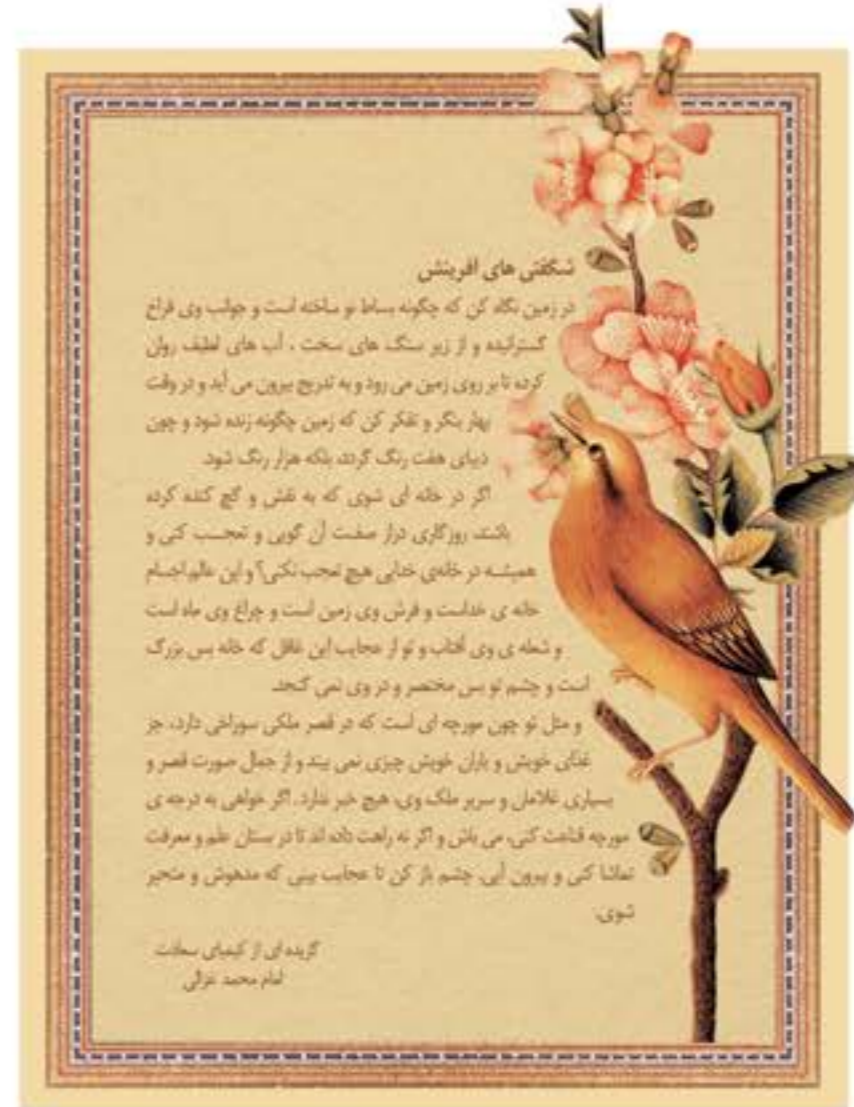 شگفتی های آفرینش
در زمین نگاه کن که چگونه بساط تو ساخته است و جوانب وی فراخ
گسترانیده و از زیر سنگ های سخت ، آب های لطیف روان
کرده تا بر روی زمین می رود و به تدریج بیرون می آید و در وقت
بهار بنگر و تفکر کن که زمین چگونه زنده شود و چون
دیبای هفت رنگ گردد، بلکه هزار رنگ شود.
اگر در خانه ای شوی که به نقش و گچ کنده کرده
باشند، روزگاری دراز صفت آن گویی و تعجب کنی و
همیشه در خانه‌ی خدایی هیچ تعجب نکنی؟ و این عالم اجسام
خانه ی خداست و فرش وی زمین است و چراغ وی ماه است
و شعله ی وی آفتاب و تو از عجایب این غافل که خانه بس بزرگ
است و چشم تو بس مختصر و در وی نمی گنجد.
و مثل تو چون مورچه ای است که در قصر ملکی سوراخی دارد، جز
غذای خویش و یاران خویش چیزی نمی بیند و از جمال صورت قصر و
بسیاری غلامان و سریر ملک وی، هیچ خبر ندارد. اگر خواهی به درجه ی
مورچه قناعت کنی، می باش و اگر نه راهت داده اند تا در بستان علم و معرفت
تماشا کنی و بیرون آیی. چشم باز کن تا عجایب بینی که مدهوش و متحیر
شوی.
گزیده ای از کیمیای سعادت
امام محمد غزالی